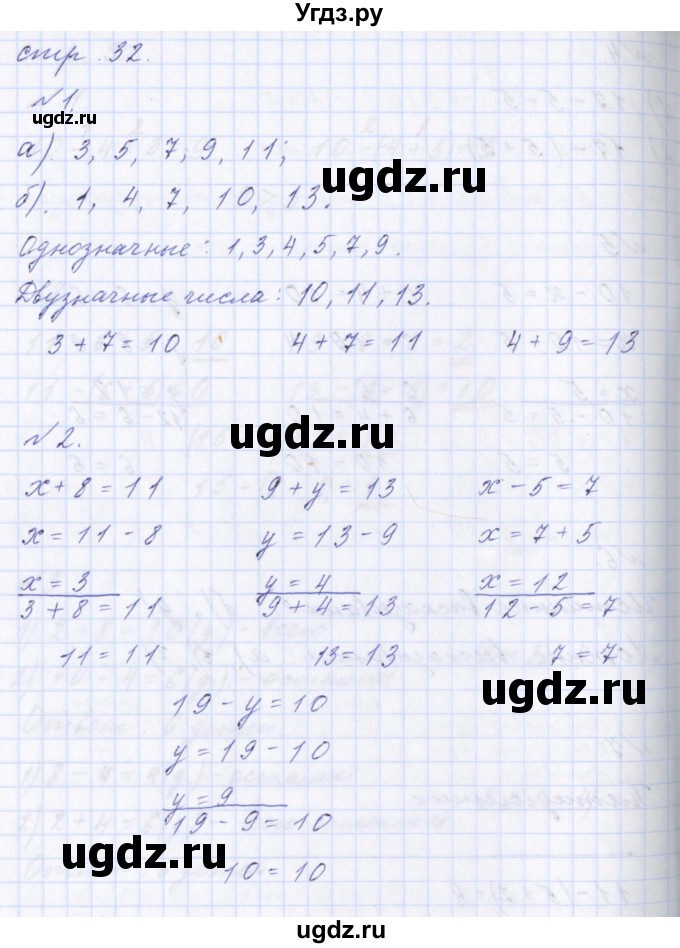 Угдз.ру
стр. 32.
№1.
ugdz.ru
а). 3, 5, 7, 9, 11;
ugdz.ru
б). 1, 4, 7, 10, 13.
Однозначные: 1, 3, 4, 5, 7, 9.
Двузначные числа: 10, 11, 13.
3 + 7 = 10 4 + 7 = 11 4 + 9 = 13
ugdz.ru
№2.
x + 8 = 11 9 + y = 13 x - 5 = 7
x = 11 - 8 y = 13 - 9 x = 7 + 5
x = 3 y = 4 x = 12
3 + 8 = 11 9 + 4 = 13 12 - 5 = 7
11 = 11 13 = 13 7 = 7
ugdz.ru
19 - y = 10
y = 19 - 10
y = 9
19 - 9 = 10
ugdz.ru
10 = 10
Угдз.ру